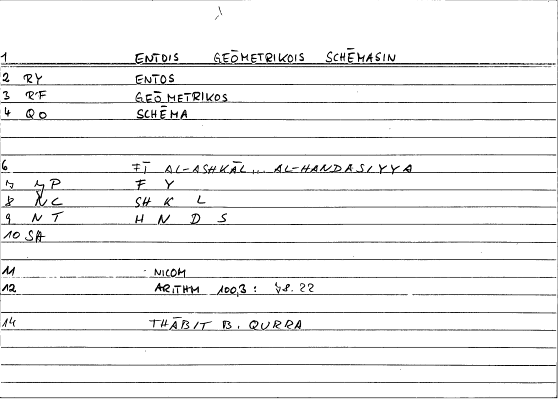 1 ENTOIS GEŌMETRIKOIS SCHĒMASIN
2 RY ENTOS
3 RF GEŌMETRIKOS
4 QO SCHĒMA
6 FĪ AL-ASHKĀL... AL-HANDASIYYA
7 P F Y
8 NC SH K L
9 NT H N D S
10 SA
11 NICOM
12 ARITHM 100,3 : 8.22
14 THĀBIT B. QURRA